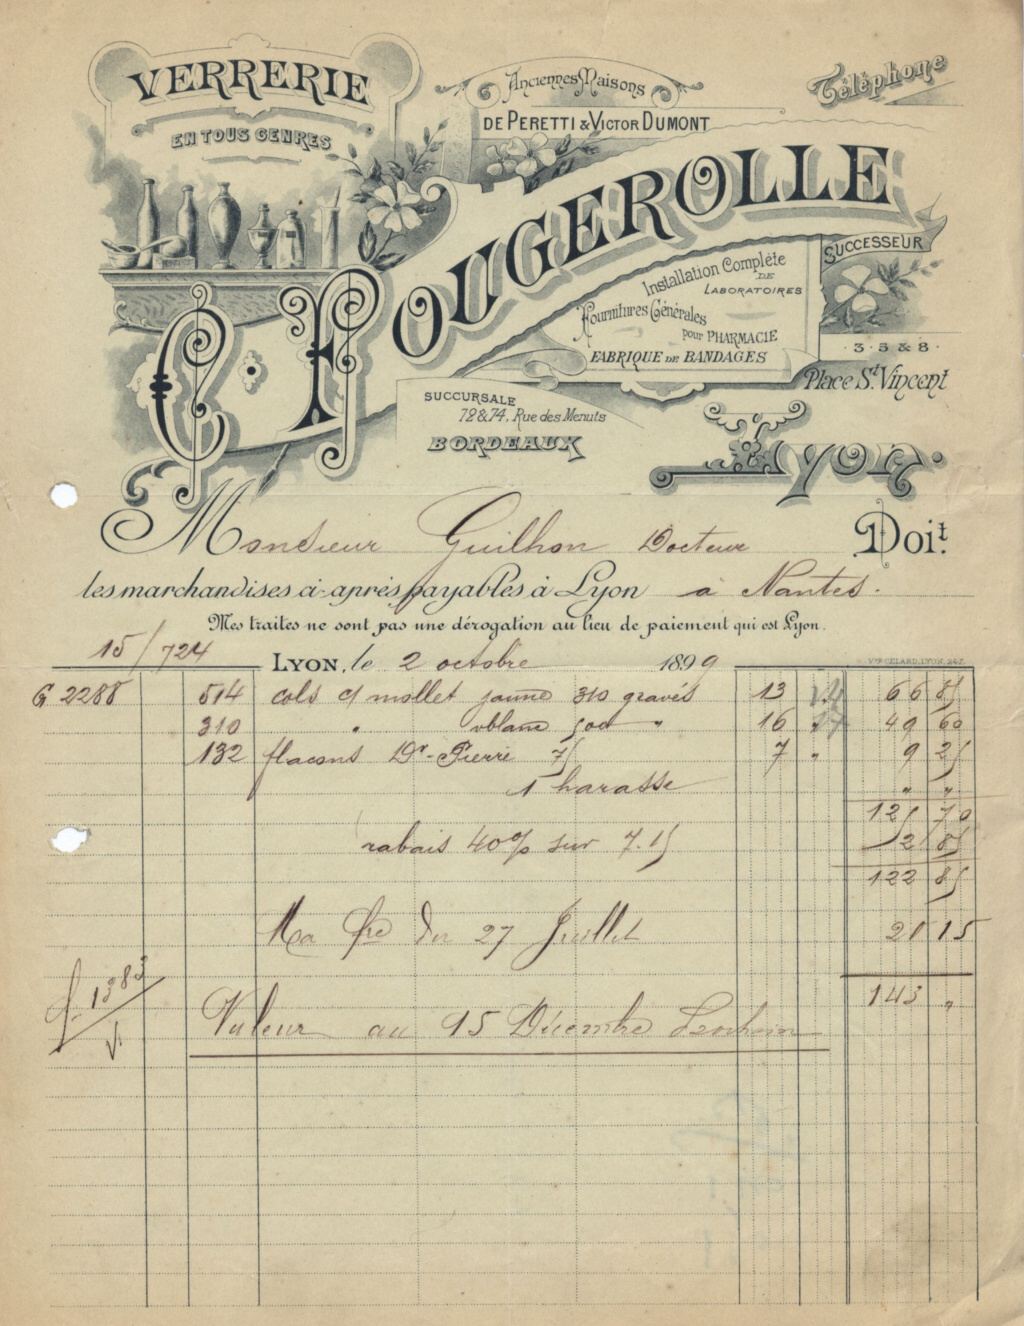 VERRERIE
EN TOUS GENRES
Anciennes Maisons
DE PERETTI & VICTOR DUMONT
Téléphone
C. FOUGEROLLE
SUCCESSEUR
Installation Complète
DE
LABORATOIRES
Fournitures Générales
pour PHARMACIE
FABRIQUE DE BANDAGES
3 · 5 & 8 ·
Place St Vincent
SUCCURSALE
72 & 74, Rue des Menuts
BORDEAUX
Lyon.
Monsieur Guilhon Docteur Doit
les marchandises ci-après payables à Lyon à Nantes.
Mes traites ne sont pas une dérogation au lieu de paiement qui est Lyon.
15/724
LYON, le 2 octobre 1899
Vve GELARD, LYON
G 2288 514 cols d mollet jaune 310 gravés 13 66 85
310 " blanc 500 " 16 " 49 60
132 flacons Dr. Pierre 75 7 " 9 25
1 harasse " "
125 70
rabais 40% sur 7.15 2 85
122 85
Ma fre du 27 Juillet 20 15
f. 1383
143 "
Valeur au 15 Décembre